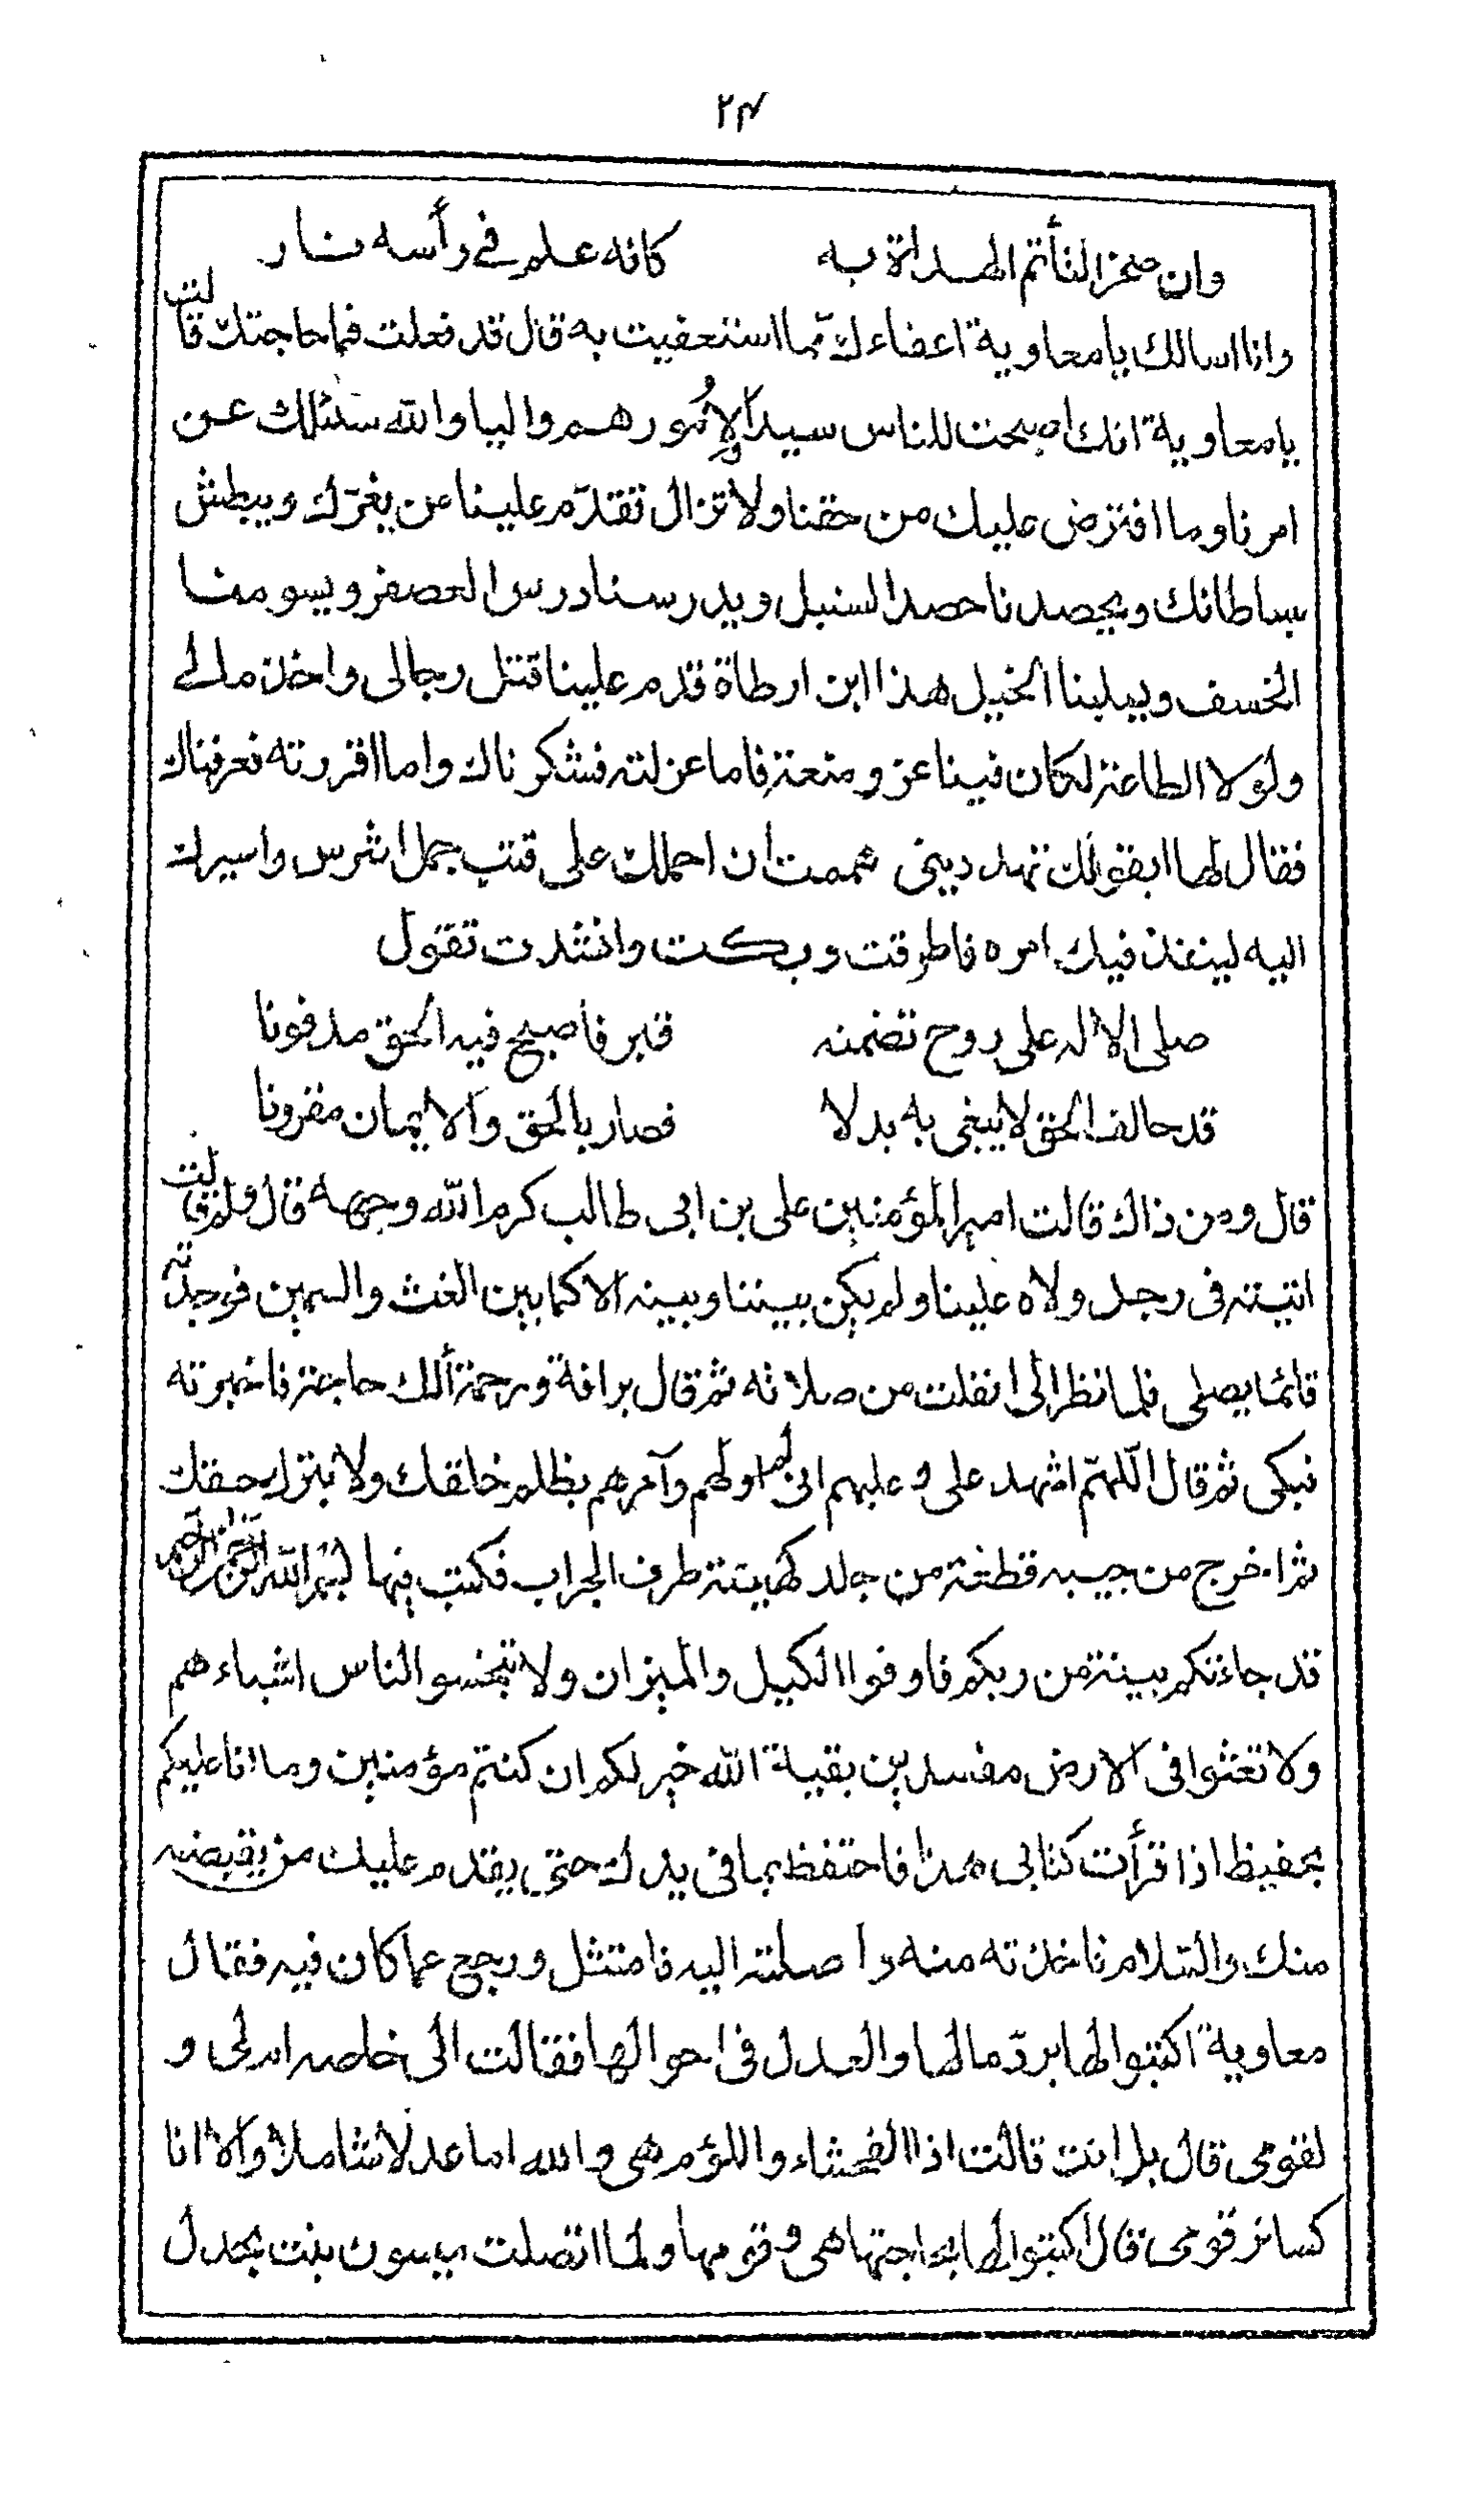 ٢٤
وان صخرا لنأتم الهداة به كانه علم في رأسه نار
وانا اسالك يا معاوية اعفاءك مما استعفيت به قال قد فعلت فما حاجتك قالت
يا معاوية انك اصبحت للناس سيدا ولامورهم واليا والله سئلك عن
امرنا وما افترض عليك من حقنا ولا تزال تقدّم علينا من يغرّك ويبطش
بسلطانك ويحصدنا حصد السنبل ويدرسنا درس العصفر ويسومنا
الخسف ويبلينا الخيل هذا ابن ارطاة قدم علينا قتل رجالى واخذ مالي
ولولا الطاعة لكان فينا عز ومنعة فاما عزلته فشكرناك واما اقررته فعرفناك
فقال لها ابقولك تهددينى هممت ان احملك على قتب جمل اشرس واسيرك
اليه لينفذ فيك امره فاطرقت وبكت وانشدت تقول
صلى الاله على روح تضمنه قبر فاصبح فيه الحق مدفونا
قد حالف الحق لا يبغى به بدلا فصار بالحق والايمان مقرونا
قال ومن ذاك قالت امير المؤمنين على بن ابى طالب كرم الله وجهه قال ولم قالت
اتيته فى رجل ولاه علينا ولم يكن بيننا وبينه الا كما بين الغث والسمين فوجدته
قائما يصلى فلما نظر الى انفلت من صلاته ثم قال برافة ورحمة ألك حاجة فاخبرته
فبكى ثم قال اللهمّ اشهد على وعليهم انى لم اولهم وآمرهم بظلم خلقك ولا بترك حقك
ثم اخرج من جيبه قطعة من جلد كهيئة طرف الجراب فكتب فيها بسم الله الرحمن الرحيم
قد جاءتكم بينة من ربكم فاوفوا الكيل والميزان ولا تبخسوا الناس اشياءهم
ولا تعثوا فى الارض مفسدين بقية الله خير لكم ان كنتم مؤمنين وما انا عليكم
بحفيظ اذا قرأت كتابى هذا فاحتفظ بما فى يدك حتى يقدم عليك من يقبضه
منك والسلام فاخذته منه واصلته اليه فامتثل ورجع عما كان فيه فقال
معاوية اكتبوا لها بردّ مالها والعدل فى احوالها فقالت الى خاصه ام لى و
لقومى قال بل انت قالت اذا الفحشاء واللؤم هى والله اما عدلا شاملا والا انا
كسائر قومى قال اكتبوا لها بحاجتها هى وقومها ولما اتصلت ميسون بنت بحدل